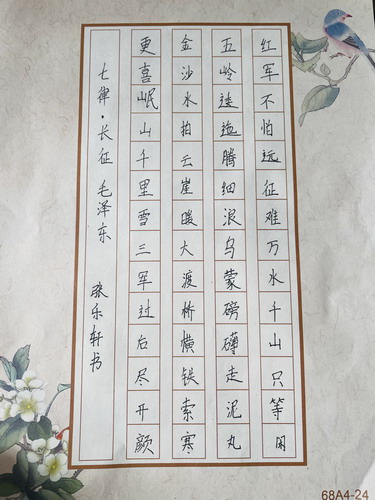 红军不怕远征难万水千山只等闲
五岭逶迤腾细浪乌蒙磅礴走泥丸
金沙水拍云崖暖大渡桥横铁索寒
更喜岷山千里雪三军过后尽开颜
七律·长征 毛泽东
张乐轩书
68A4-24